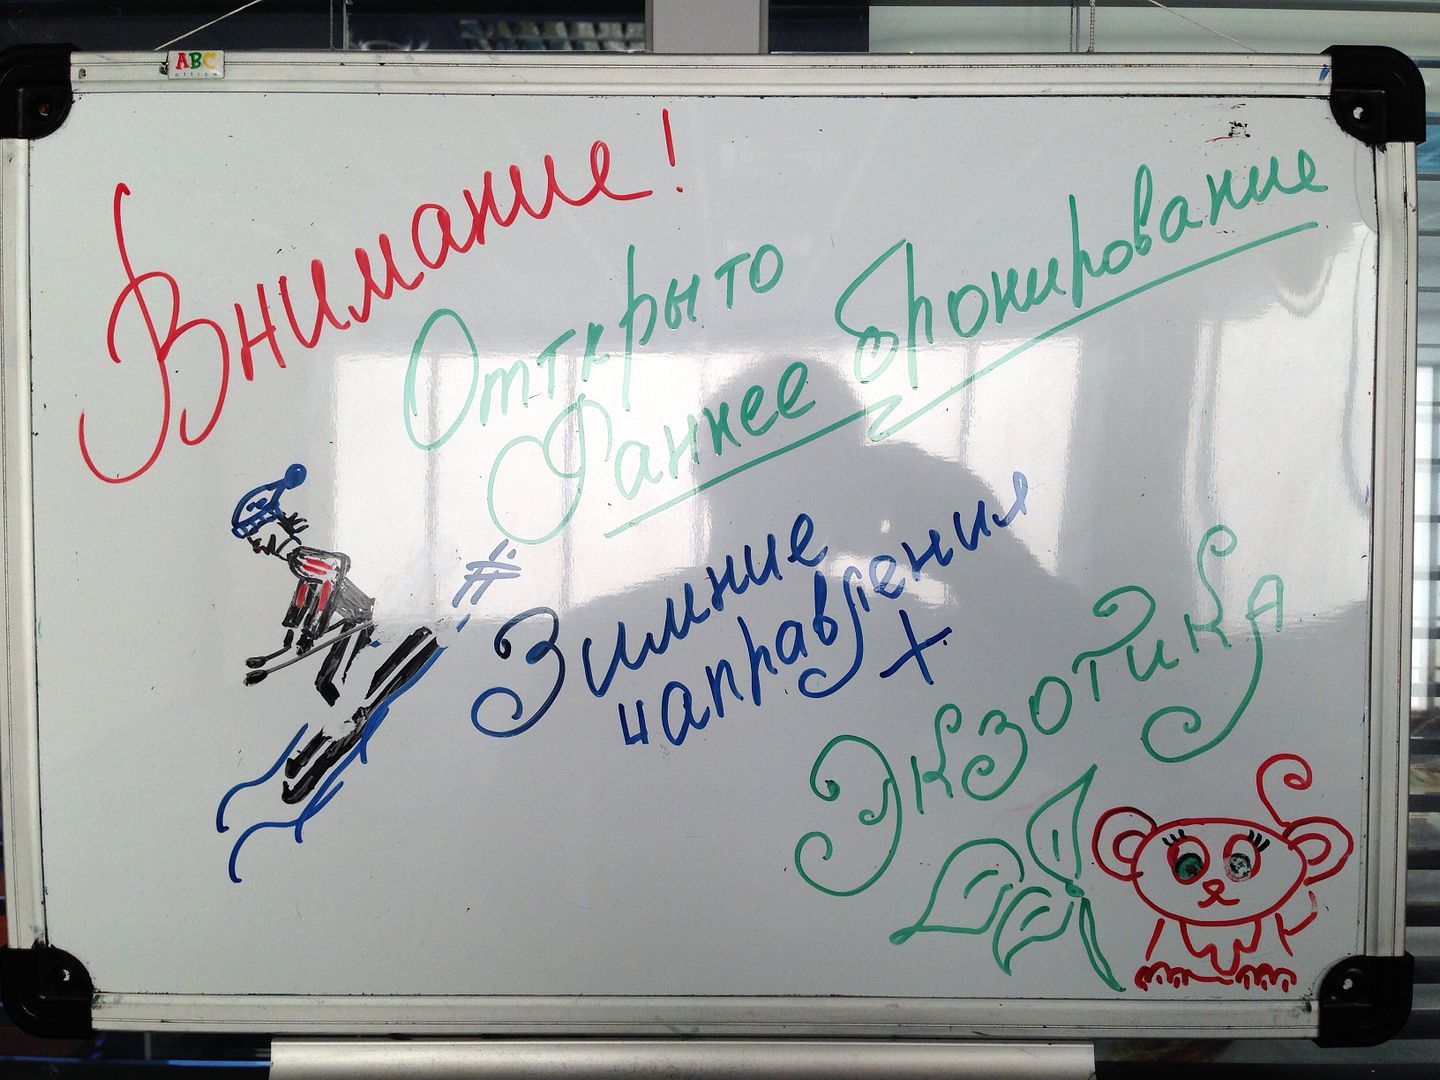 ABC
office
Внимание!
Открыто
Раннее бронирование
Зимние
направления
+
Экзотика